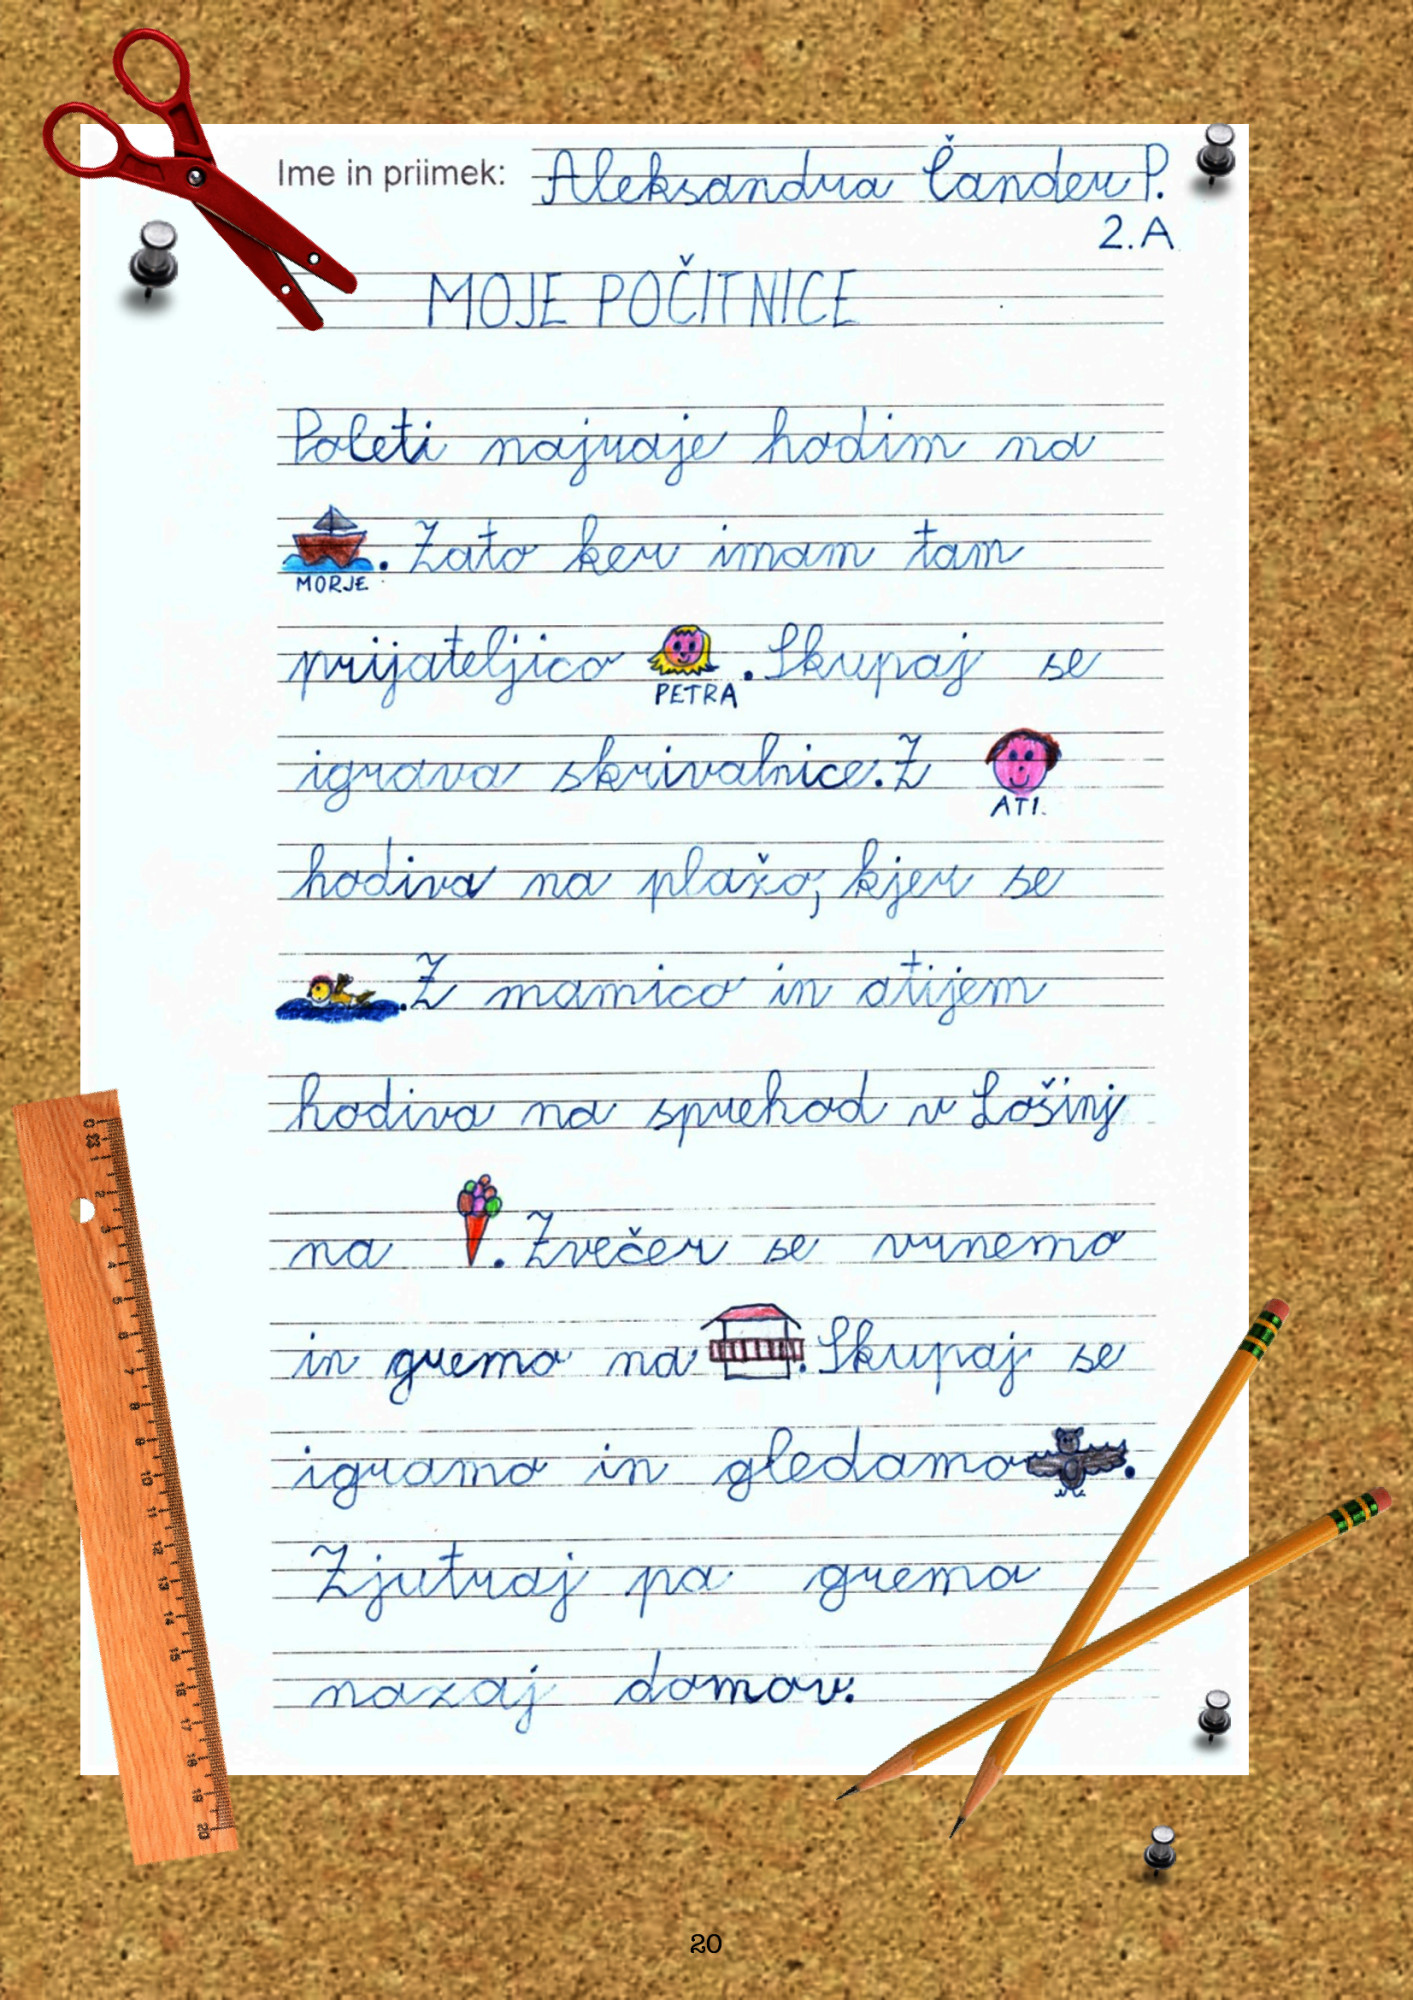 Ime in priimek: Aleksandra Čander P.
2. A
MOJE POČITNICE
Poleti najraje hodim na
. Zato ker imam tam
MORJE
prijateljico . Skupaj se
PETRA
igrava skrivalnice. Z
ATI.
hodiva na plažo, kjer se
. Z mamico in atijem
hodiva na sprehod v Lošinj
na . Zvečer se vrnemo
in gremo na . Skupaj se
igramo in gledamo .
Zjutraj pa gremo
nazaj domov.
0 1 2 3 4 5 6 7 8 9 10 11 12 13 14 15 16 17 18 19 20
20